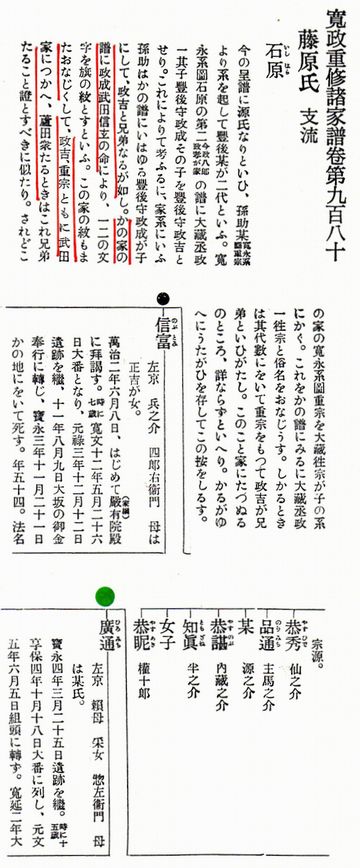 寛政重修諸家譜巻第九百八十
藤原氏 支流
石原
いし はら
今の呈譜に源氏なりといひ、孫助某寛永系圖重宗
より系を起して豐後某が二代といふ。寛
永系圖石原の第二今政八郎政孝が家の譜に大蔵丞政
一其子豐後守政成その子を豐後守政吉と
せり。これによりて考ふるに、家系にいふ
孫助はかの譜にいはゆる豐後守政成が子
にして、政吉と兄弟なるが如し。かの家の
譜に政成武田信玄の命により、一二の文
字を旗の紋とすといふ。この家の紋もま
たおなじくして、政吉、重宗ともに武田
家につかへ、蘆田衆たるときはこれ兄弟
たること證とすべきに似たり。されどこ
の家の寛永系圖重宗を大蔵往宗が子の系
にかく。これをかの譜にみるに大蔵丞政
一往宗と俗名をおなじうす。しかるとき
は其代數にをいて重宗をもつて政吉が兄
弟といひがたし。このこと家にたづぬる
のところ、詳ならずといへり。かるがゆ
へにうたがひを存してこの按をしるす。
信富
のぶ とみ
左京 兵之介 四郎右衛門 母は
正吉が女。
萬治二年六月八日、はじめて嚴有院殿(家綱)
に拜謁す。時に七歳寛文十二年五月二十六
日大番となり、元祿三年十二月十二日
遺跡を繼、十一年八月九日大坂の御金
奉行に轉じ、寶永三年十一月二十一日
かの地にをいて死す。年五十四。法名
宗源。
恭秀 仙之介
やす ひで
品通 主馬之介
のり みち
某 源之介
恭諶 内蔵之介
やす のぶ
知眞 半之介
とも ざね
女子
恭昵 權十郎
やす ちか
廣通
ひろ みち
左京 頼母 采女 惣左衛門 母
は某氏。
寶永四年三月二十五日遺跡を繼。時に十五歳
享保四年十月十八日大番に列し、元文
五年六月五日組頭に轉ず。寛延二年大